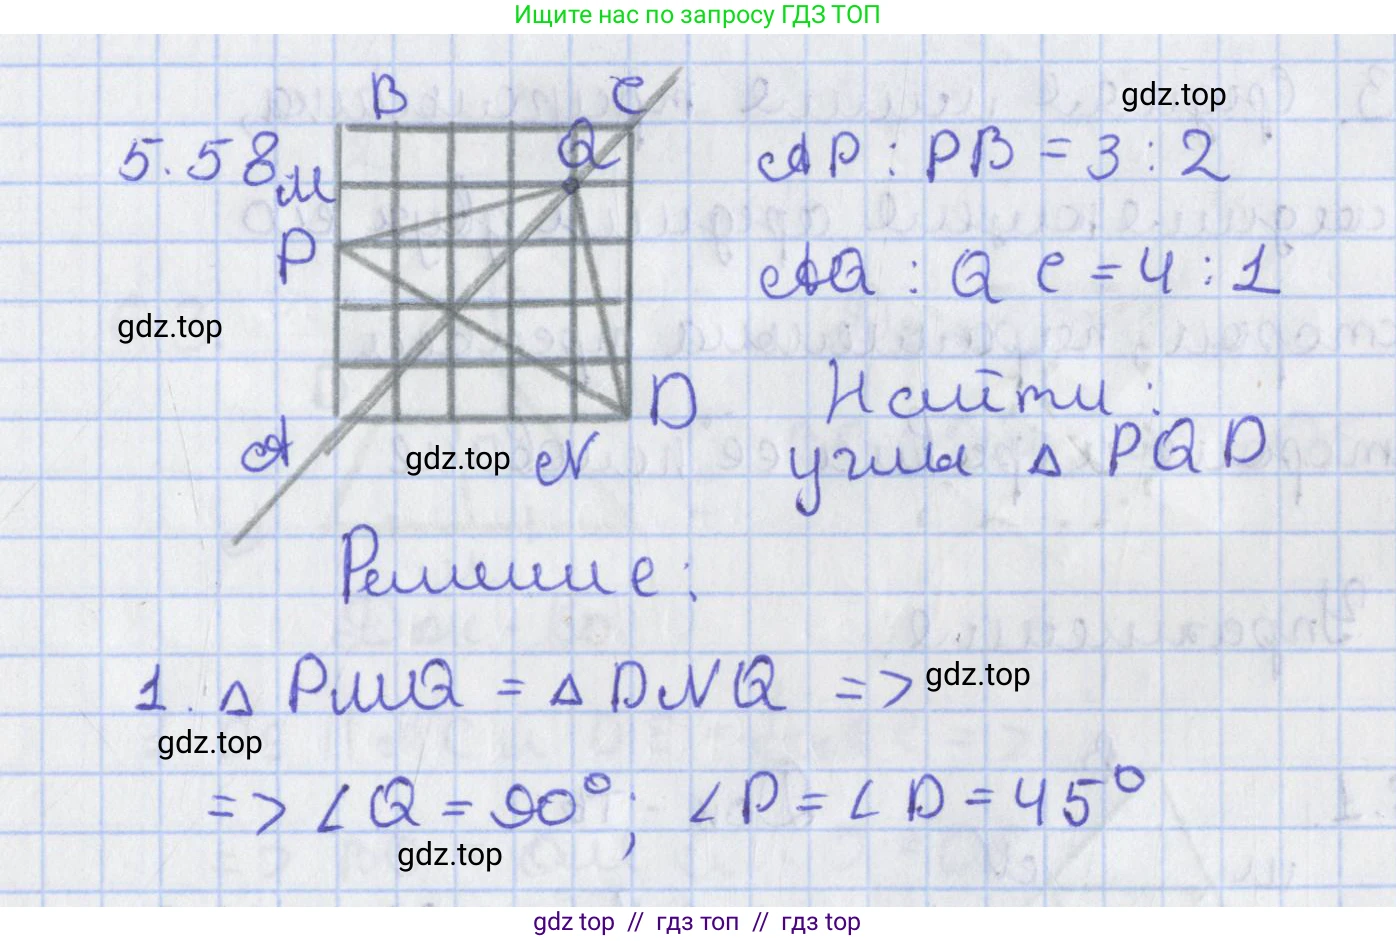 Ищите нас по запросу ГДЗ ТОП
B C
gdz.top
5.58
M
Q
AP : PB = 3 : 2
P
AQ : QC = 4 : 1
gdz.top
D
Найти:
A
gdz.top
N
углы Δ PQD
Решение:
1. Δ PMQ = Δ DNQ =>
gdz.top
gdz.top
=> ∠Q = 90°; ∠P = ∠D = 45°
gdz.top
gdz top // гдз топ // гдз top